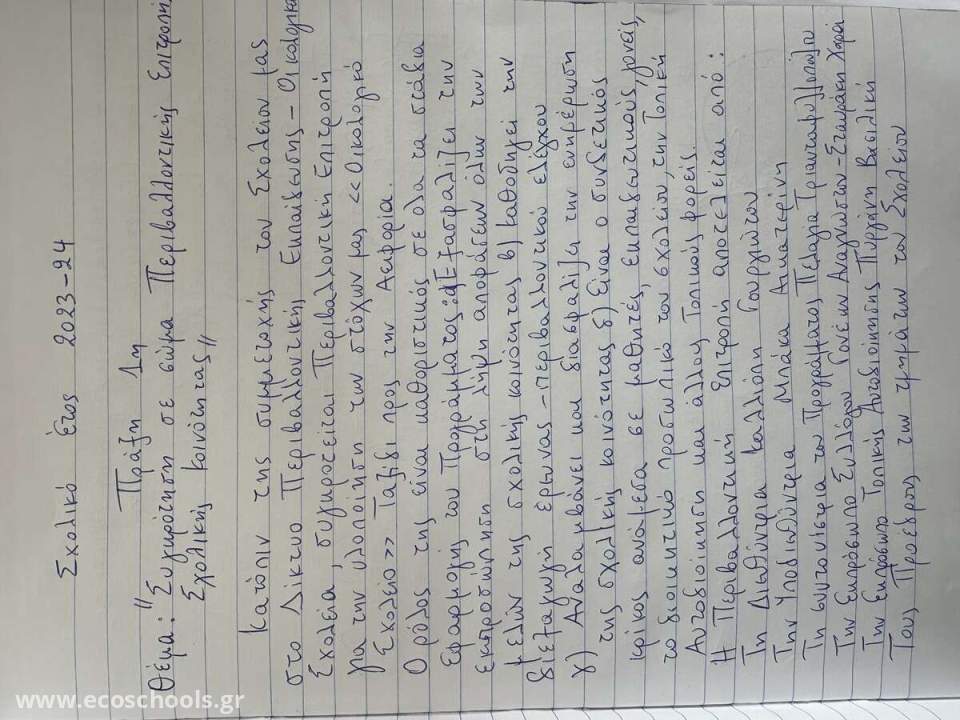 Σχολικό Έτος 2023-24
Πράξη 1η
Θέμα: "Συγκρότηση σε σώμα Περιβαλλοντικής Επιτροπής
Σχολικής Κοινότητας"
Κατόπιν της συμμετοχής του Σχολείου μας
στο Δίκτυο Περιβαλλοντικής Εκπαίδευσης - Οικολογικά
Σχολεία, συγκροτείται Περιβαλλοντική Επιτροπή
για την υλοποίηση των στόχων μας << Οικολογικό
Σχολείο >> Ταξίδι προς την Αειφορία.
Ο ρόλος της είναι καθοριστικός σε όλα τα στάδια
Εφαρμογής του Προγράμματος: α) Εξασφαλίζει την
εκπροσώπηση στη λήψη αποφάσεων όλων των
μελών της σχολικής κοινότητας β) καθοδηγεί την
διεξαγωγή έρευνας - περιβαλλοντικού ελέγχου
γ) Αναλαμβάνει και διασφαλίζει την ενημέρωση
της σχολικής κοινότητας δ) Είναι ο συνδετικός
κρίκος ανάμεσα σε μαθητές, εκπαιδευτικούς, γονείς,
το διοικητικό προσωπικό του σχολείου, την Τοπική
Αυτοδιοίκηση και άλλους Τοπικούς φορείς.
Η Περιβαλλοντική Επιτροπή αποτελείται από:
Τη Διευθύντρια Καλλιόπη Γουργιώτου
Την Υποδιευθύντρια Μπάκα Αικατερίνη
Τη συντονίστρια του Προγράμματος Πελαγία Τριανταφυλλοπούλου
Την Εκπρόσωπο Συλλόγου Γονέων Αναγνώστου - Σταυράκη Χαρά
Την Εκπρόσωπο Τοπικής Αυτοδιοίκησης Πυργάκη Βασιλική
Τους Προέδρους των τμημάτων του Σχολείου
www.ecoschools.gr